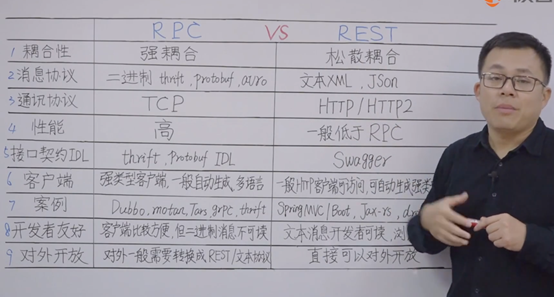 RPC VS REST
1 耦合性 强耦合 松散耦合
2 消息协议 二进制 thrift、protobuf、avro 文本XML、JSon
3 通讯协议 TCP HTTP/HTTP2
4 性能 高 一般低于RPC
5 接口契约IDL thrift、Protobuf IDL Swagger
6 客户端 强类型客户端,一般自动生成,多语言 一般HTTP客户端可访问,可自动生成强类
7 案例 Dubbo、motan、Tars、grpc、thrift SpringMVC/Boot、Jax-rs、
8 开发者友好 客户端比较方便,但二进制消息不可读 文本消息开发者可读、浏
9 对外开放 对外一般需要转换成REST/文本协议 直接可以对外开放